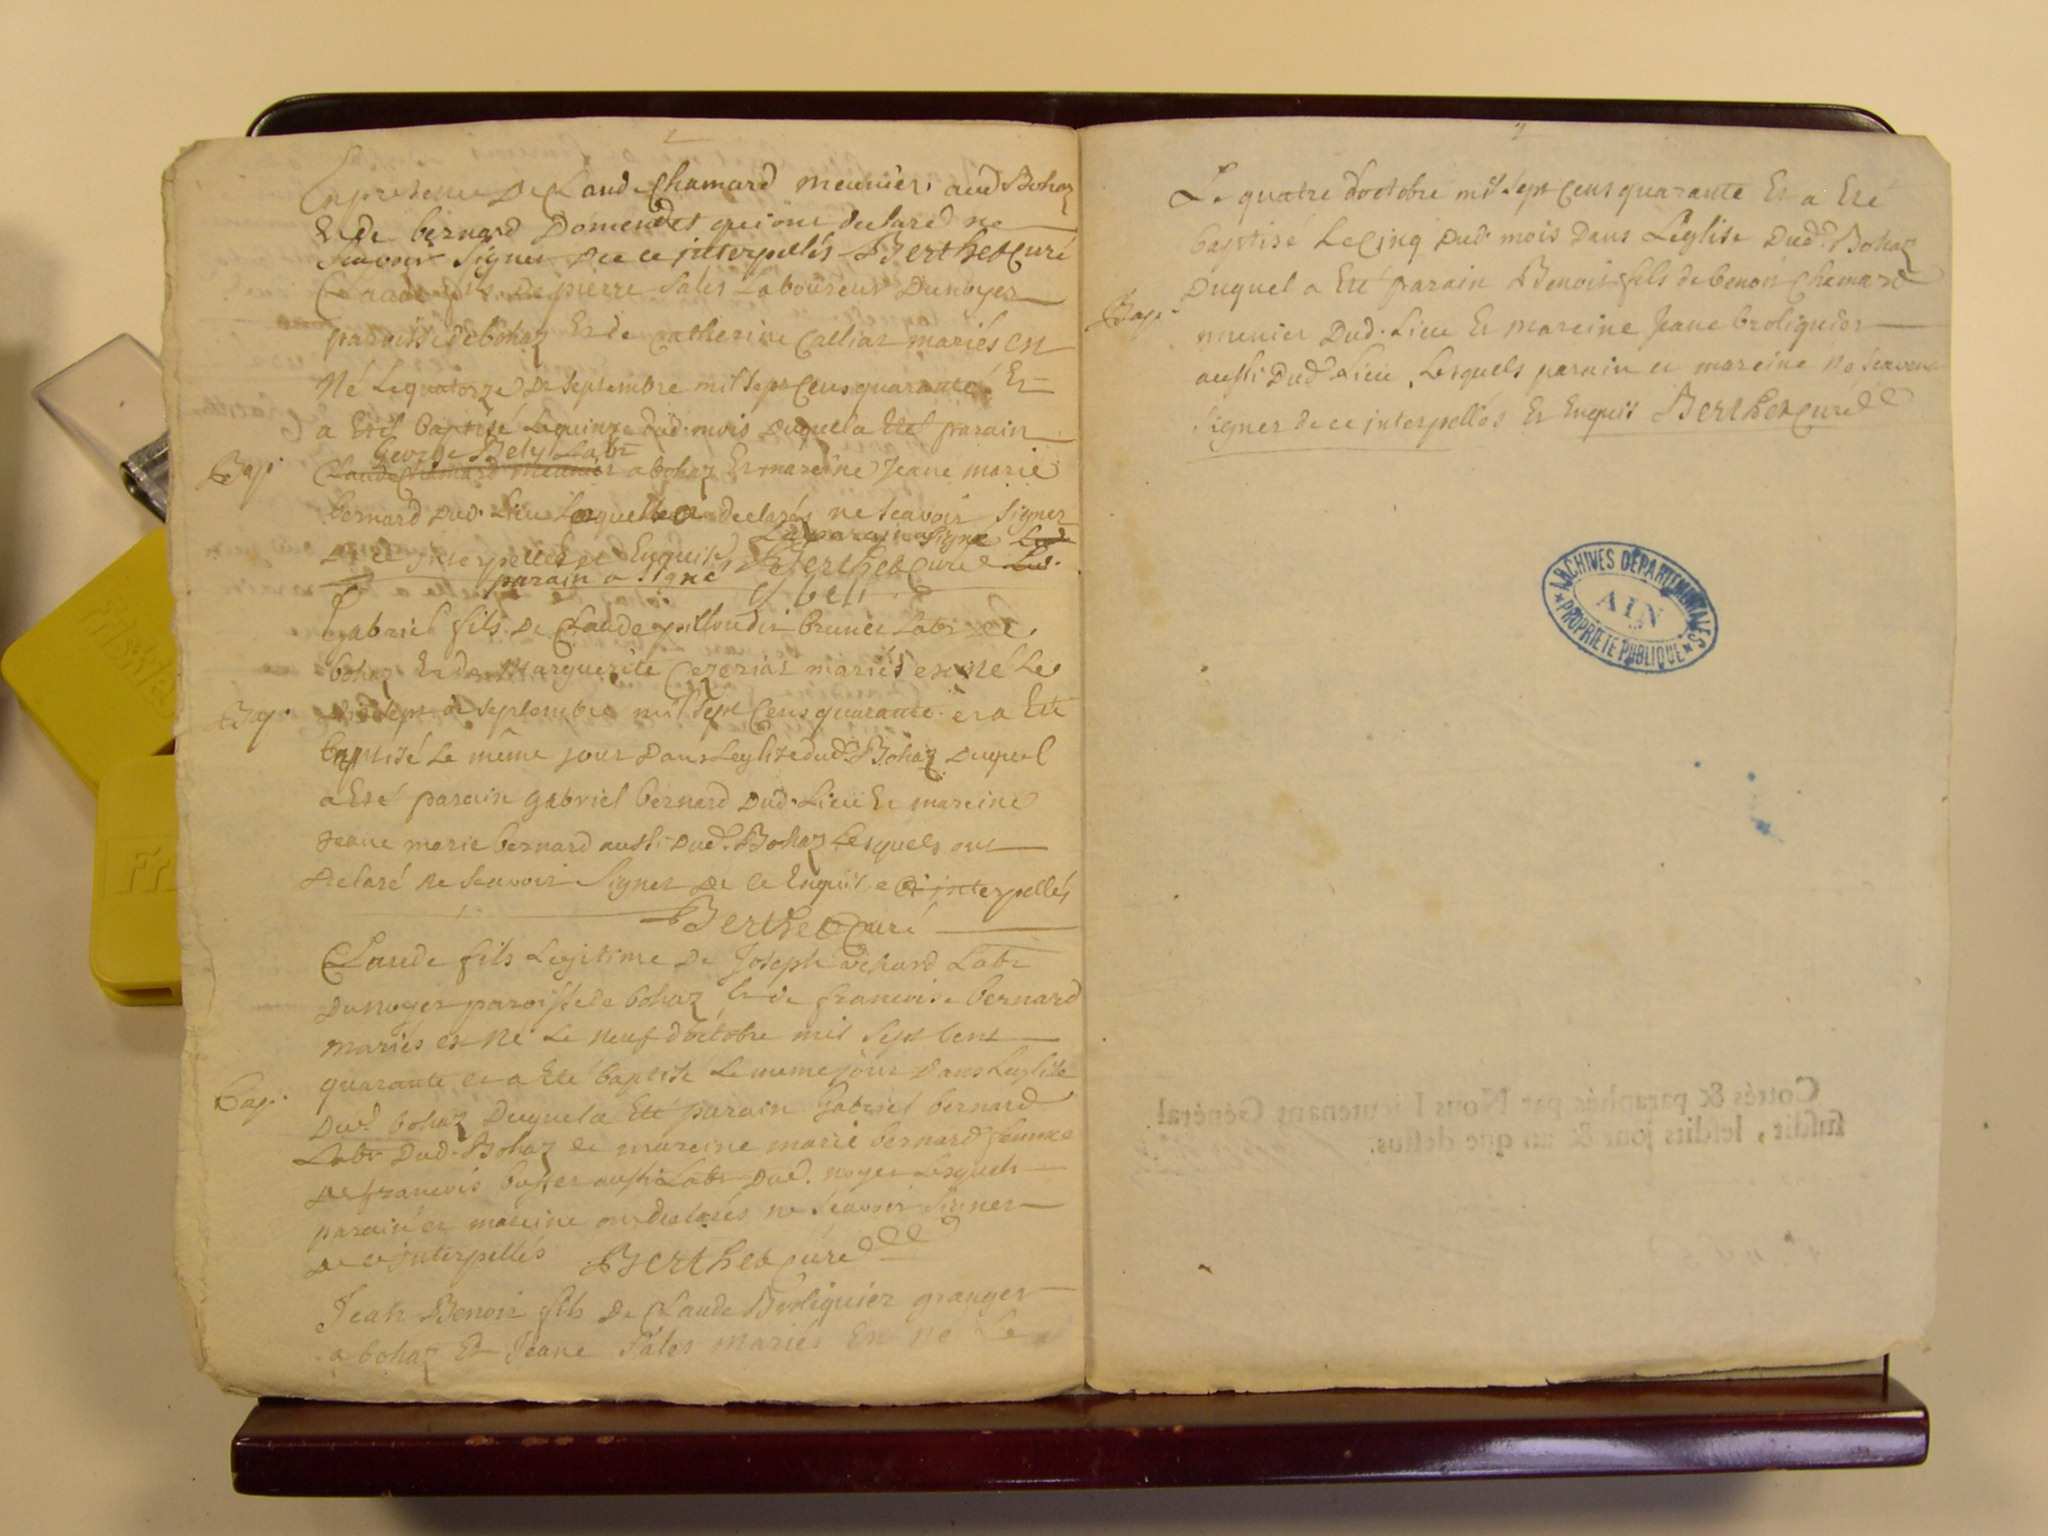 En presence de Claude Chamard meunier aud Bohaz
Et de bernard Domendet qui ont declaré ne
scavoir signer de ce interpellés Berthet Curé
Claude fils de pierre Sales Laboureur Du noyer
paroisse de bohaz Et de Catherine Calliat mariés en
Né Le quatorze de septembre mil sept Cens quarante Et
a Eté baptisé Le quinze dud. mois duquel a Eté parain
George Bely Labr
Bap.
Claude Chamard meunier a bohaz Et mareine Jeane marie
bernard dud. Lieu declarés ne scavoir signer
Le parain a signé Led
de ce interpellés et Enquis Berthet Curé Led.
parain a signé
G beli
gabriel fils de Claude brunet Labr de
bohaz Et de Marguerite Cezeriat mariés en né Le
Bap.
dixsept de septembre mil sept Cens quarante et a Eté
baptisé Le même jour dans Leglise dud. Bohaz Duquel
a Eté parain gabriel bernard dud. Lieu Et mareine
jeane marie bernard aussi dud. Bohaz Lesquels ont
declaré ne scavoir signer de ce Enquis et interpellés
Berthet Curé
Claude fils Legitime de Joseph vichard Labr
du noyer paroisse de bohaz Et de francoise bernard
mariés en né Le neuf doctobre mil sept Cent
quarante et a Eté baptisé Le meme jour dans Leglise
Bap.
dud. bohaz duquel a Eté parain gabriel bernard
Labr dud. Bohaz et mareine marie bernard femme
de francois aussi Labr dud. noyer Lesquels
parain et mareine ont declarés ne scavoir signer
de ce interpellés Berthet Curé
Jean Benoit fils de Claude Broliquier granger
a bohaz Et Jeane Sales mariés En né Le
2
Le quatre doctobre mil sept Cens quarante Et a Eté
baptisé Le Cinq dud. mois dans Leglise dud. Bohaz
duquel a Eté parain Benoit fils de benoit Chamard
Bap.
meunier dud. Lieu Et mareine jeane broliquier
aussi dud. Lieu, Lesquels parain et mareine ne scavent
signer de ce interpellés Et Enquis Berthet Curé
ARCHIVES DEPARTEMENTALES
AIN
PROPRIETE PUBLIQUE
Cottés & paraphés par Nous Lieutenant Général
susdit, lesdits jour & an que dessus.
Friskies
Fri